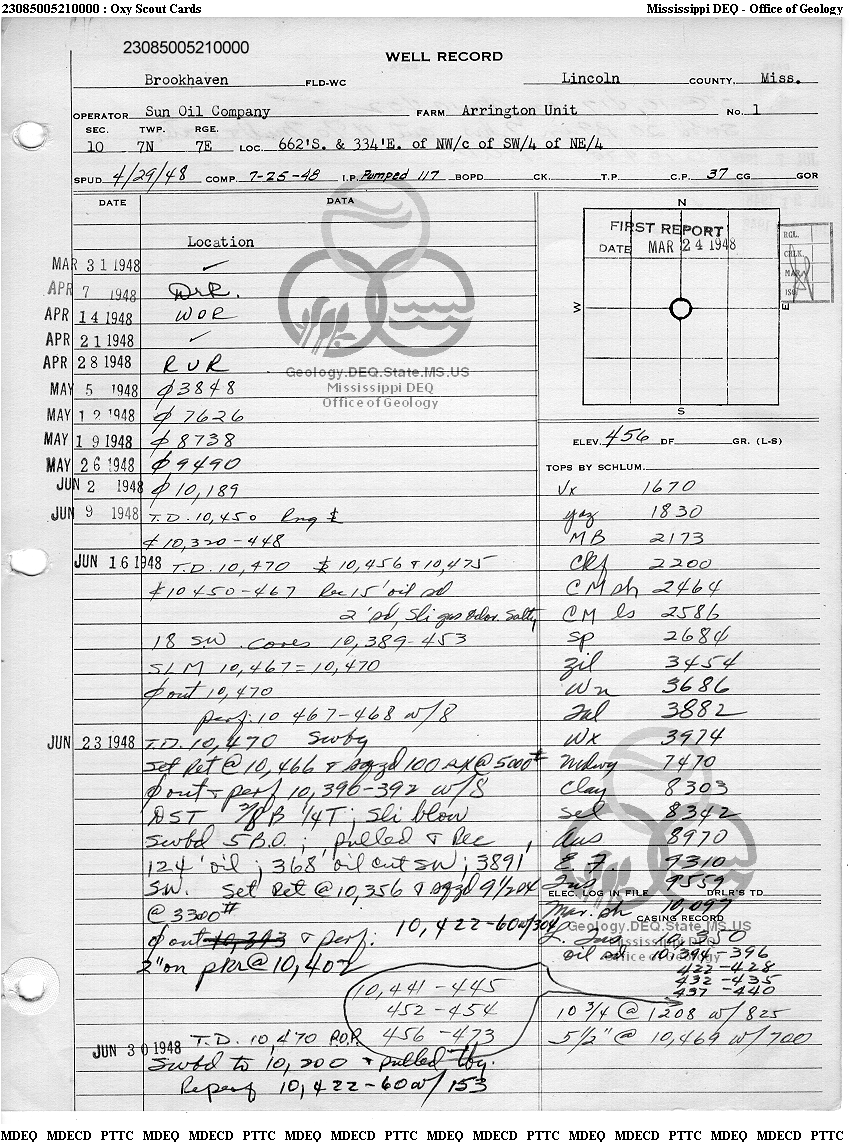 23085005210000 : Oxy Scout Cards
Mississippi DEQ - Office of Geology
23085005210000
WELL RECORD
Brookhaven FLD-WC Lincoln COUNTY, Miss.
OPERATOR Sun Oil Company FARM Arrington Unit No. 1
SEC. TWP. RGE.
10 7N 7E LOC. 662'S. & 334'E. of NW/c of SW/4 of NE/4
SPUD 4/29/48 COMP. 7-25-48 I.P. Pumped 117 BOPD CK. T.P. C.P. 37 CG GOR
DATE DATA
Location
MAR 31 1948 ✓
APR 7 1948 DrR.
APR 14 1948 WOR
APR 21 1948 ✓
APR 28 1948 RUR
MAY 5 1948 φ 3848
MAY 12 1948 φ 7626
MAY 19 1948 φ 8738
MAY 26 1948 φ 9490
JUN 2 1948 φ 10,189
JUN 9 1948 T.D. 10,450 Rng
10,320-448
JUN 16 1948 T.D. 10,470 10,456 & 10,475
10450-467 Rec 15' oil sd
2' sd, Sli gas odor. Salty
18 S.W. cores 10,389-453
SLM 10,467 = 10,470
φ out 10,470
perf: 10 467-468 w/8
JUN 23 1948 T.D. 10,470 Swbg
Set Ret @ 10,466 & sqzd 100 sx @ 5000#
φ out & perf 10,390-392 w/8
DST 3/8 B 1/4 T; Sli blow
Swbd 5 B.O.; pulled & Rec
124' oil; 368' oil cut SW; 3891'
SW. Set Ret @ 10,356 & sqzd 91/204
@ 3300#
φ out 10,393 & perf: 10,422-60 w/304
2" on pkr @ 10,402
10,441-445
452-454
456-473
JUN 30 1948 T.D. 10,470 P.O.P.
Swbd to 10,200 & pulled tbg.
Reperf 10,422-60 w/153
N
FIRST REPORT
DATE MAR 24 1948
W E
S
RGL.
CHLK.
MAR.
ISG.
ELEV. 456 DF. GR. (L-S)
TOPS BY SCHLUM.
Vx 1670
yaz 1830
MB 2173
Ckf 2200
CM sh 2464
CM ls 2586
Sp 2684
Zil 3454
Wn 3686
Tal 3882
Wx 3974
Mdwy 7470
Clay 8303
Sel 8342
Aus 8970
E F 9310
Tus 9559
ELEC. LOG IN FILE DRLR'S TD
Mar. sh 10,097
CASING RECORD
L. Tus 10,350
oil sd 10,394-396
422-428
432-435
437-440
10 3/4 @ 1208 w/825
5 1/2" @ 10,469 w/700
Geology.DEQ.State.MS.US
Mississippi DEQ
Office of Geology
Geology.DEQ.State.MS.US
Mississippi DEQ
Office of Geology
MDEQ MDECD PTTC MDEQ MDECD PTTC MDEQ MDECD PTTC MDEQ MDECD PTTC MDEQ MDECD PTTC MDEQ MDECD PTTC